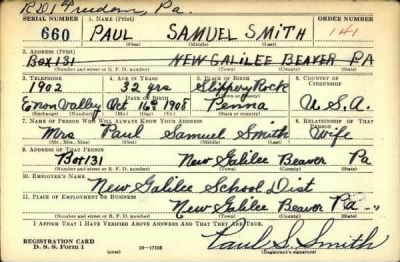 RD1 Freedom, Pa.
SERIAL NUMBER 1. NAME (Print) ORDER NUMBER
660 PAUL SAMUEL SMITH 141
(First) (Middle) (Last)
2. ADDRESS (Print)
Box 131 NEW GALILEE BEAVER PA
(Number and street or R. F. D. number) (Town) (County) (State)
3. TELEPHONE 4. AGE IN YEARS 5. PLACE OF BIRTH 6. COUNTRY OF CITIZENSHIP
1902 32 yrs Slippery Rock
DATE OF BIRTH (Town or county)
Enon Valley Oct 16th 1908 Penna U.S.A.
(Exchange) (Number) (Mo.) (Day) (Yr.) (State or country)
7. NAME OF PERSON WHO WILL ALWAYS KNOW YOUR ADDRESS 8. RELATIONSHIP OF THAT PERSON
Mrs Paul Samuel Smith Wife
(Mr., Mrs., Miss) (First) (Middle) (Last)
9. ADDRESS OF THAT PERSON
Box 131 New Galilee Beaver Pa
(Number and street or R. F. D. number) (Town) (County) (State)
10. EMPLOYER'S NAME
New Galilee School Dist
11. PLACE OF EMPLOYMENT OR BUSINESS
New Galilee Beaver Pa
(Number and street or R. F. D. number) (Town) (County) (State)
I AFFIRM THAT I HAVE VERIFIED ABOVE ANSWERS AND THAT THEY ARE TRUE.
REGISTRATION CARD
D. S. S. Form 1 (over) 16—17105 Paul S. Smith
(Registrant's signature)